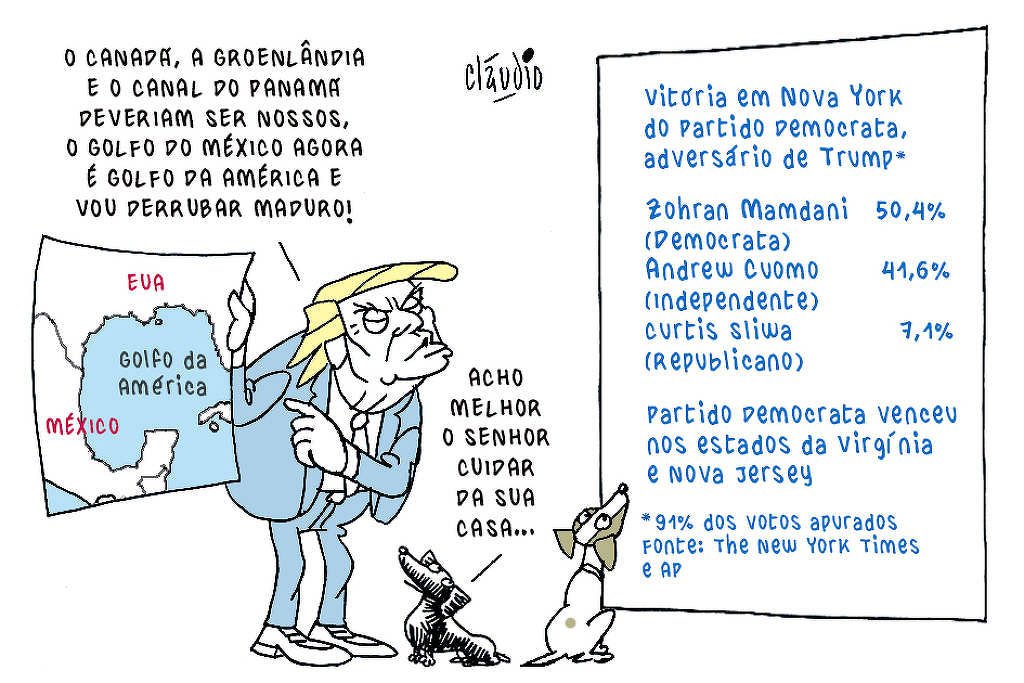 O CANADÁ, A GROENLÂNDIA
E O CANAL DO PANAMÁ
DEVERIAM SER NOSSOS,
O GOLFO DO MÉXICO AGORA
É GOLFO DA AMÉRICA E
VOU DERRUBAR MADURO!
cláudio
EUA
GOLFO da
América
MÉXICO
ACHO
MELHOR
O SENHOR
CUIDAR
DA SUA
CASA...
Vitória em Nova York
do Partido Democrata,
adversário de Trump*
Zohran Mamdani 50,4%
(Democrata)
Andrew Cuomo 41,6%
(Independente)
Curtis Sliwa 7,1%
(Republicano)
Partido Democrata venceu
nos estados da Virgínia
e Nova Jersey
*91% dos votos apurados
Fonte: The New York Times
e AP